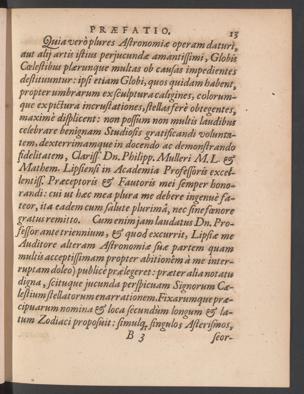 PRÆFATIO. 13
Quia verò plures Astronomiæ operam daturi,
aut alij artis istius perjucundæ amantissimi, Globis
Cœlestibus plærunque multas ob causas impedientes
destituuntur: ipsi etiam Globi, quos quidam habent,
propter umbrarum ex sculptura caligines, colorum-
que ex pictura incrustationes, stellas ferè obtegentes,
maximè displicent: non possum non multis laudibus
celebrare benignam Studiosis gratificandi volunta-
tem, dexterrimamque in docendo ac demonstrando
fidelitatem, Clariss. Dn. Philipp. Mulleri M. L. &
Mathem. Lipsiensi in Academia Professoris excel-
lentiss. Præceptoris & Fautoris mei semper hono-
randi: cui ut hæc mea plura me debere ingenuè fa-
teor, ita eadem cum salute plurimâ, nec sine fœnore
gratus remitto. Cum enim jam laudatus Dn. Pro-
fessor ante triennium, & quod excurrit, Lipsiæ me
Auditore alteram Astronomiæ suæ partem quam
multis acceptissimam propter abitionem à me inter-
ruptam doleo) publicè prælegeret: præter alia notatu
digna, scituque jucunda perspicuam Signorum Cœ-
lestium stellatorum enarrationem, Fixarumque præ-
cipuarum nomina & loca secundùm longum & la-
tum Zodiaci proposuit: simulq; singulos Asterismos,
B 3 scor-